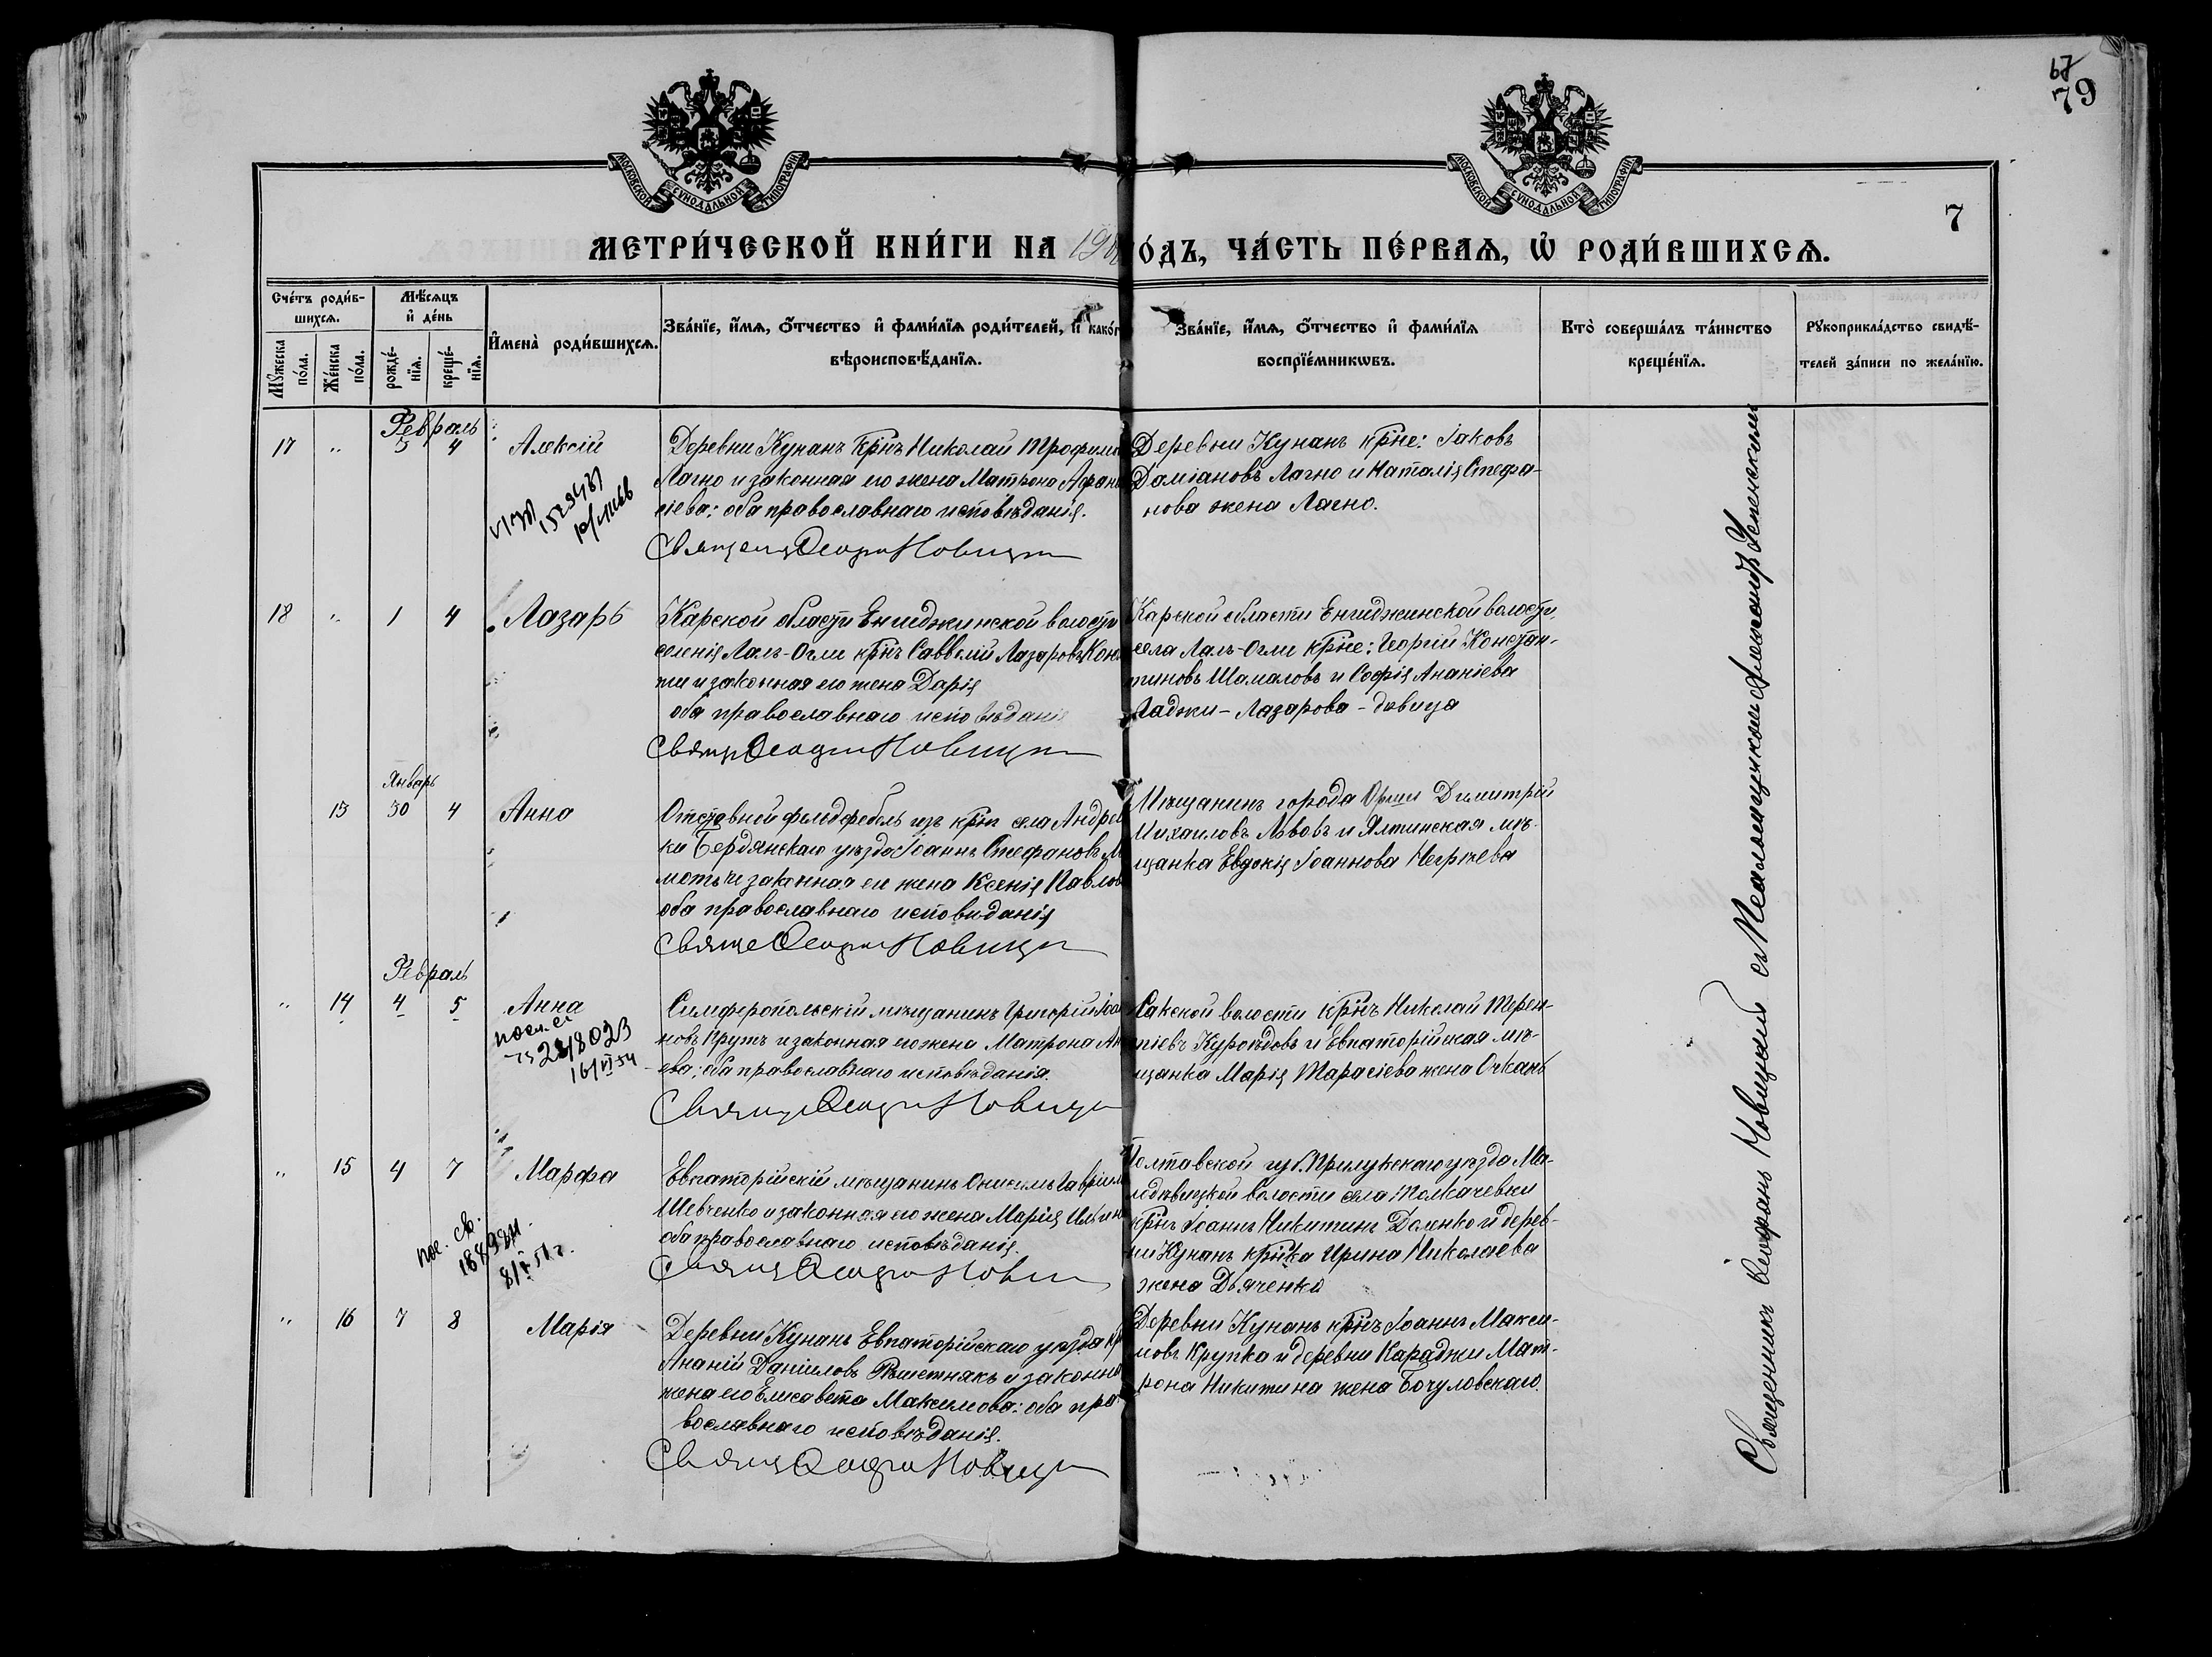 67
79
МОСКОВСКОЙ СѴНОДАЛЬНОЙ ТИПОГРАФІИ
МОСКОВСКОЙ СѴНОДАЛЬНОЙ ТИПОГРАФІИ
7
МЕТРИ́ЧЕСКОЙ КНИ́ГИ НА 190 О́ДЪ, ЧА́СТЬ ПЕ́РВАѦ, Ѡ҆ РОДИ́ВШИХСѦ.
Сче́тъ роди́в-
шихсѧ.
Мꙋжеска по́ла.
Же́нска по́ла.
Мѣ́сѧцъ
и҆ де́нь
рожде́-
нїѧ.
креще́-
нїѧ.
И҆мена̀ роди́вшихсѧ.
Зва́нїе, и҆́мѧ, ѻ҆́тчество и҆ фами́лїѧ роди́телей, и҆ како́г
вѣроисповѣ́данїѧ.
Зва́нїе, и҆́мѧ, ѻ҆́тчество и҆ фами́лїѧ
воспрїе́мникѡвъ.
Кто̀ соверша́лъ та́инство
креще́нїѧ.
Рꙋкоприкла́дство свидѣ́-
телей за́писи по жела́нїю.
Февраль
17 " 3 4 Алексій
Деревни Кунанъ крнъ Николай Трофимо
Лагно и законная его жена Матрона Афана
сіева; оба православнаго исповѣданія.
Священ Ѳеофан Новицки
Деревни Кунанъ крне: Іаковъ
Даміановъ Лагно и Наталія Стефа-
нова жена Лагно.
18 " 1 4 Лазарь
Карской области Енгиджинской волости
селенія Лалъ-Огли крнъ Саввелій Лазаровъ Кон
ти и законная его жена Дарія
оба православнаго исповѣданія
Священ Ѳеофан Новицки
Карской области Енгиджинской волости,
села Лалъ-Огли крне: Георгій Констан-
тиновъ Шамаловъ и Софія Ананіева
Хаджи-Лазарова-дѣвица
Январь
13 30 4 Анна
Отставной фельдфебель изъ крн села Андрев
ки Бердянскаго уѣзда Іоаннъ Стефановъ Ма
мотъ и законная его жена Ксенія Павлов
оба православнаго исповѣданія
Свяще Ѳеофан Новицки
Мѣщанинъ города Орши Димитрій
Михаиловъ Львовъ и Ялтинская мѣ-
щанка Евдокія Іоаннова Негрѣева
Февраль
" 14 4 5 Анна
посл. св
28/8023
16/VI 54
Симферопольскій мѣщанинъ Григорій Іоа
новъ Прутъ и законная его жена Матрона Ан
ева; оба православнаго исповѣданія.
Священ Ѳеофан Новицки
Сакской волости крнъ Николай Терен-
тіевъ Куроѣдовъ и Евпаторійская мѣ-
щанка Марія Тарасіева жена Очкань
" 15 4 7 Марфа
пос. св.
188984
8/V 51 г.
Евпаторійскій мѣщанинъ Онисимъ Гавріил
Шевченко и законная его жена Марія Ильин
оба православнаго исповѣданія.
Священ Ѳеофан Нови
Полтавской губ. Прилукскаго уѣзда Ма-
лодѣвицкой волости села Толкачевки
крнъ Іоаннъ Никитинъ Доленко и дерев-
ни Кунанъ крнка Ирина Николаева
жена Дьяченка
" 16 7 8 Марія
Деревни Кунанъ Евпаторійскаго уѣзда кр
Ананій Даніиловъ Рѣшетнякъ и законна
жена его Елисавета Максимова: оба пра
вославнаго исповѣданія.
Священ Ѳеофан Новицки
Деревни Кунанъ крнъ Іоаннъ Макси-
мовъ Крупка и деревни Караджи Мат-
рона Никитина жена Бочуловскаго.
Священникъ Ѳеофанъ Новицкій съ Псаломщикомъ Александръ Успенскимъ